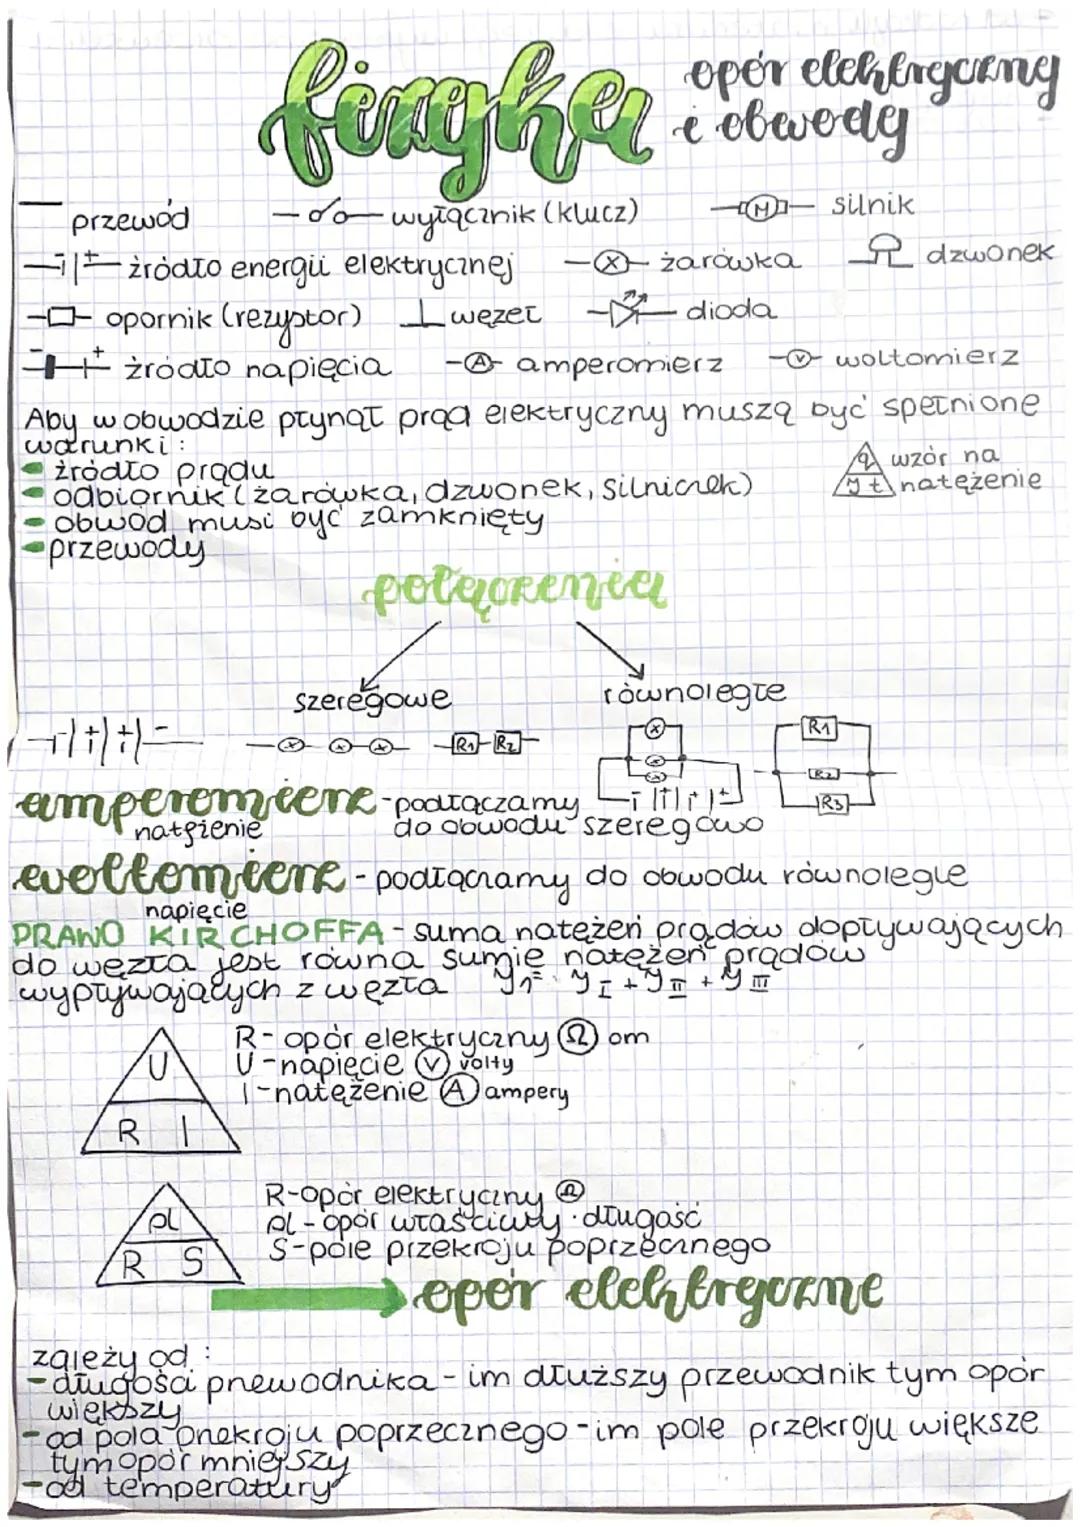 fizyka
opór elektryczny
i obwody
przewód
wyłącznik (klucz)
M
silnik
źródło energii elektrycznej
żarówka
dzwonek
opornik (rezystor)
węzeł
dioda
- +
źródło napięcia
A amperomierz
V woltomierz
Aby w obwodzie płynął prąd elektryczny muszą być spełnione
warunki:
źródło prądu
odbiornik (żarówka, dzwonek, silniczek)
obwód musi być zamknięty
przewody
q
I t
wzór na
natężenie
połączenia
szeregowe
równoległe
R1 R2
R1
R2
R3
amperomierz - podłączamy
natężenie
do obwodu szeregowo
woltomierz - podłączamy do obwodu równolegle
napięcie
PRAWO KIRCHOFFA - suma natężeń prądów dopływających
do węzła jest równa sumie natężeń prądów
wypływających z węzła I1 = I I + I II + I III
U
R I
R - opór elektryczny Ω om
U - napięcie V volty
I - natężenie A ampery
ρl
R S
R - opór elektryczny Ω
ρl - opór właściwy · długość
S - pole przekroju poprzecznego
opór elektryczne
zależy od:
- długości przewodnika - im dłuższy przewodnik tym opór
większy
- od pola przekroju poprzecznego - im pole przekroju większe
tym opór mniejszy
- od temperatury